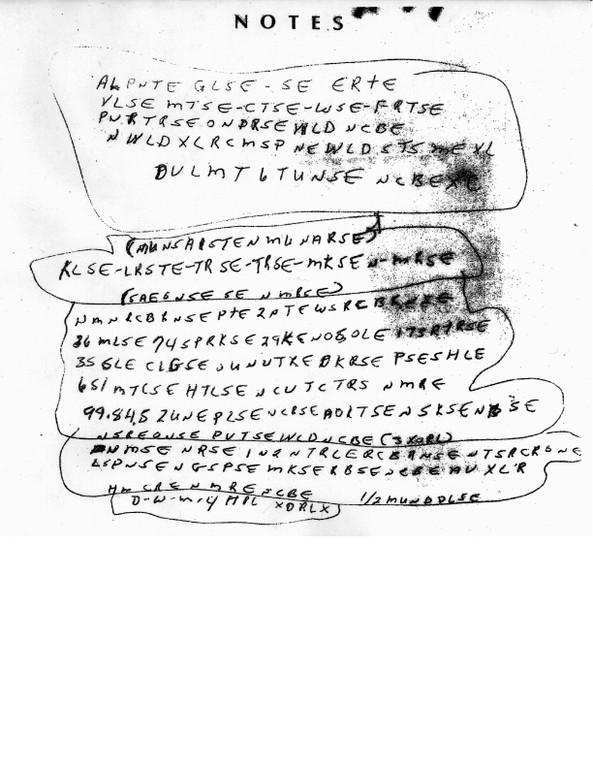 NOTES
ALPNTE GLSE-SE ERTE
VLSE MTSE-CTSE-WSE-FRTSE
PNRTRSEONDRSEWLD NCBE
NWLDXLRCMSP NEWLDSTSMEXL
DULMT6TUNSE NCBEXL
(MUNSAISTENMUNARSE)
KLSE-LRSTE-TRSE-TRSE-MKSEN-MRSE
(SAEGNSESE NMRSE)
NMNRCBRNSEPTE2PTEWSRCBRNSE
36MLSE 74SPRKSE29KENOSOLE 173RTRSE
35GLE CLGSE UNUTXE DKRSE PSESHLE
651MTCSE HTLSE NCUTCTRS NMRE
99.84.5 2UNEPLSE NCRSEAOLTSENSKSENBSE
NSREONSE PVTSEWLDNCBE (3XORL)
NMSE NRSE IN2NTRLERCBRNSE NTSRCRONE
LSPNSENGSPSE MKSERBSE NCBE AUXL'R
HM CRE NMRE NCBE 1/2MUNDDLSE
D-W-M-14 MPL XDRLX